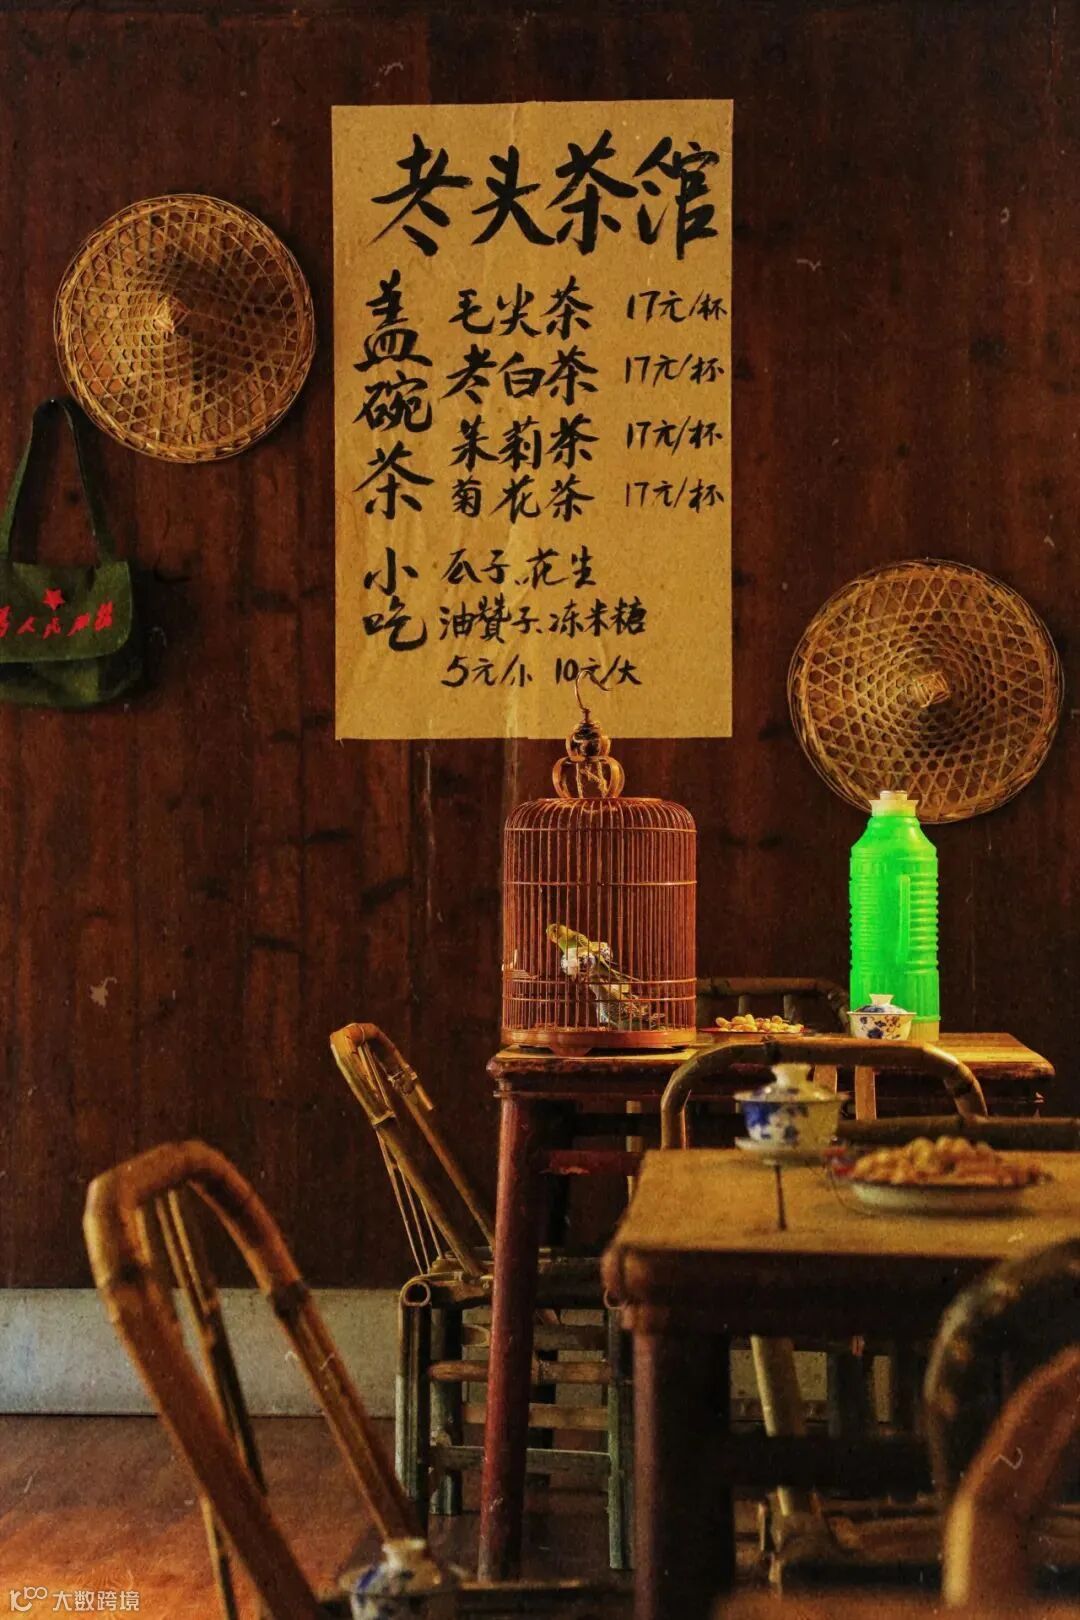 老头茶馆
盖碗茶
毛尖茶 17元/杯
老白茶 17元/杯
茉莉茶 17元/杯
菊花茶 17元/杯
小吃
瓜子、花生
油赞子、冻米糖
5元/小 10元/大
人民服务
大数跨境